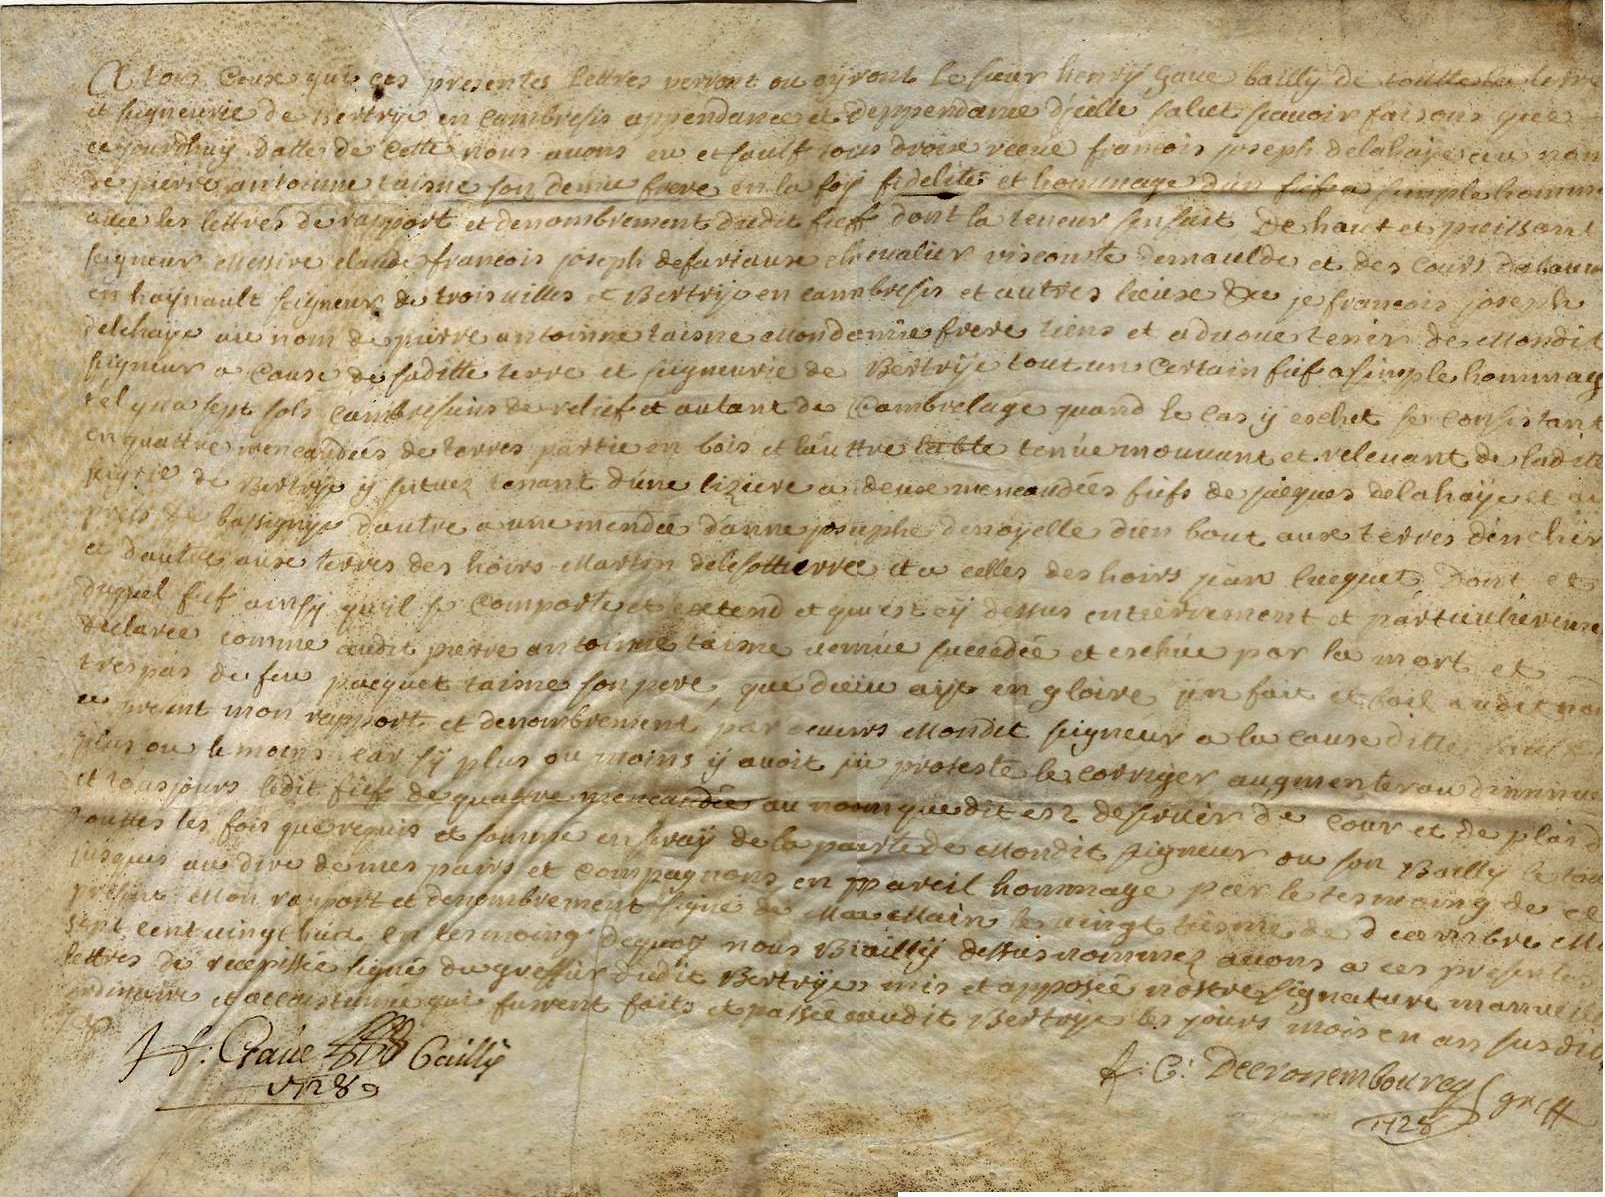 A tous ceux qui ces presentes lettres verront ou oÿront le sieur henrÿ Gaue baillÿ de touttes la terre
et seigneurie de Bertrÿe en cambresis appendance et deppendance d'icelle salut scauoir faisons que
ce jourdhuÿ datte de cette nous auons eu et saulf tous droix receue francois joseph delahaÿe au nom
de pierre antoinne taisne son demie frere en la foÿ fidelité et hommage d'un fief a simple homma
auec les lettres de rapport et denombrement dudit fieff dont la teneur sensuit De haut et puissant
seigneur Messire claude francois joseph defariaux cheualier visconte demaulde et des cours
en haÿnault seigneur de troisuilles et Bertrÿe en cambresis et autres lieux que je francois joseph
delehaÿe au nom de pierre antoinne taisne Mon demie frere tiens et aduoue tenir de Mondit
seigneur a cause de saditte terre et seigneurie de Bertrÿe tout un certain fief a simple hommag
tel qu'a sept sols cambresiens de relief et autant de Cambrelage quand le cas ÿ eschet se consistant
en quattre mencaudées de terres partie en bois et l'auttre table tenüe mouuant et releuant de ladite
sgrie de Bertrÿe ÿ situez tenant d'une liziere a deux mencaudées fiefs de jacques delahaÿe et au
prets de bassignÿe d'autre a une mendée d'anne josephe denoÿelle d'un bout aux terres
et d'autre aux terres des hoirs Martin delesottierre et a celles des hoirs jean lucquet Dont et
duquel fief ainsÿ qu'il se comporte et extend et qui est cÿ dessus entierrement et particulierem
declarée comme audit pierre antoinne taisne venüe succedée et eschüe par la mort et
trespas de feu jacquet taisne son pere, que dieu aÿe en gloire j'en fait et bail audit nom
ce present mon rapport et denombrement par deuers Mondit seigneur a la cause ditte sauf le
plus ou le moins car sÿ plus ou moins ÿ auoit je proteste le corriger augmenter ou diminue
et tousjours ledit fief de quattre mencaudées au nom que dit est deseruir de cour et de plaid
touttes les fois que requis et somme en seraÿ de la parte de Mondit seigneur ou son Baillÿ le tout
jusques au dire de mes pairs et compagnons en ppareil hommage par le tesmoing de ce
present Mon rapport et denombrement signé de Ma Main le vingt tiesme de decembre Mil
sept cent vingt huit en tesmoing dequoÿ nous Baillÿ dessus nommez auons a ces presentes
lettres de recepissée signé du greffier dudit Bertrÿe mis et apposée nostre signature manuelle
ordinaire et accoustumé qui furent faits et passée audit Bertrÿe les jours mois en an susdit
1728
H: Gaue Baillÿ
1728
f: C: Decronembourcg greff
1728